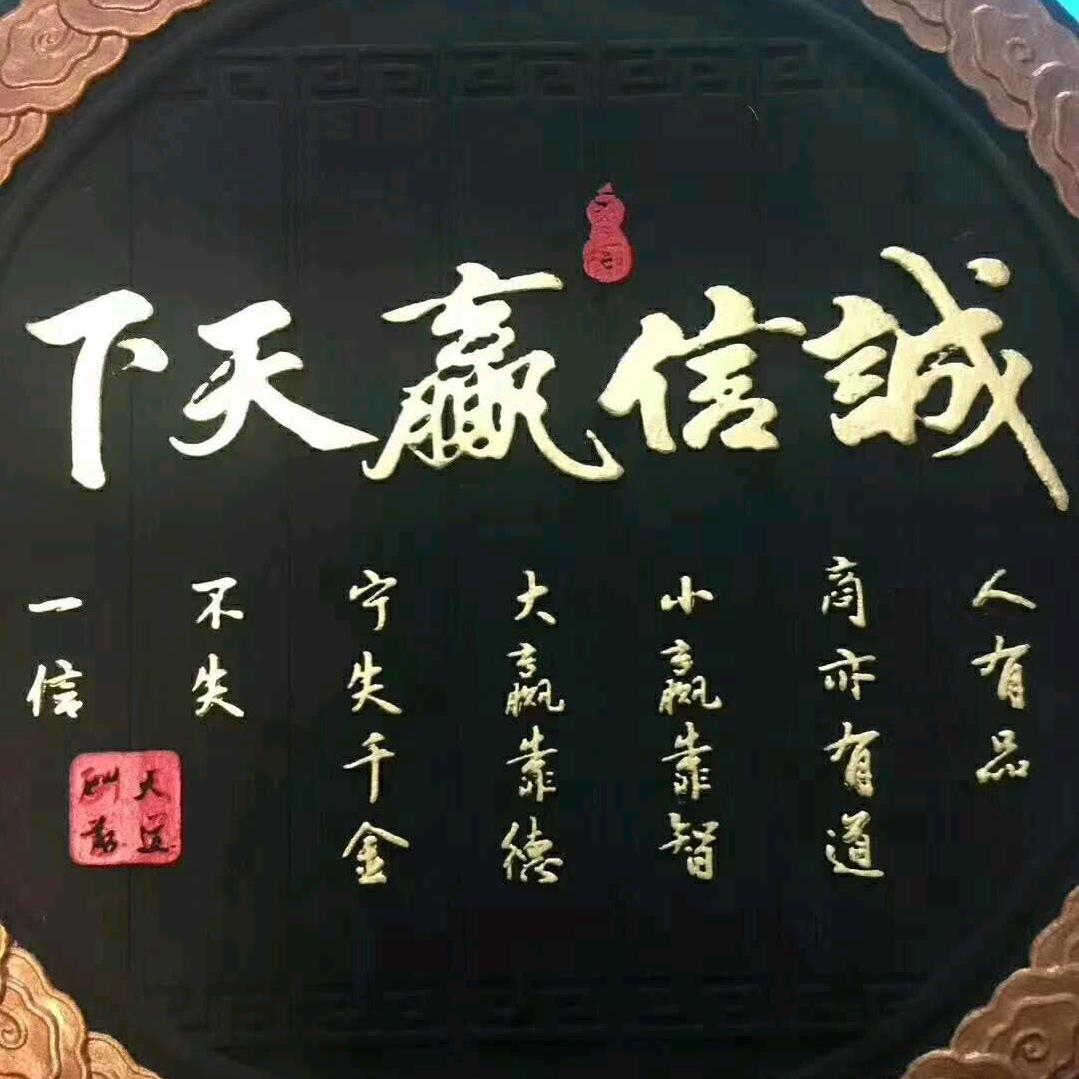 誠信贏天下
人有品
商亦有道
小贏靠智
大贏靠德
宁失千金
不失
一信
天道
酬勤